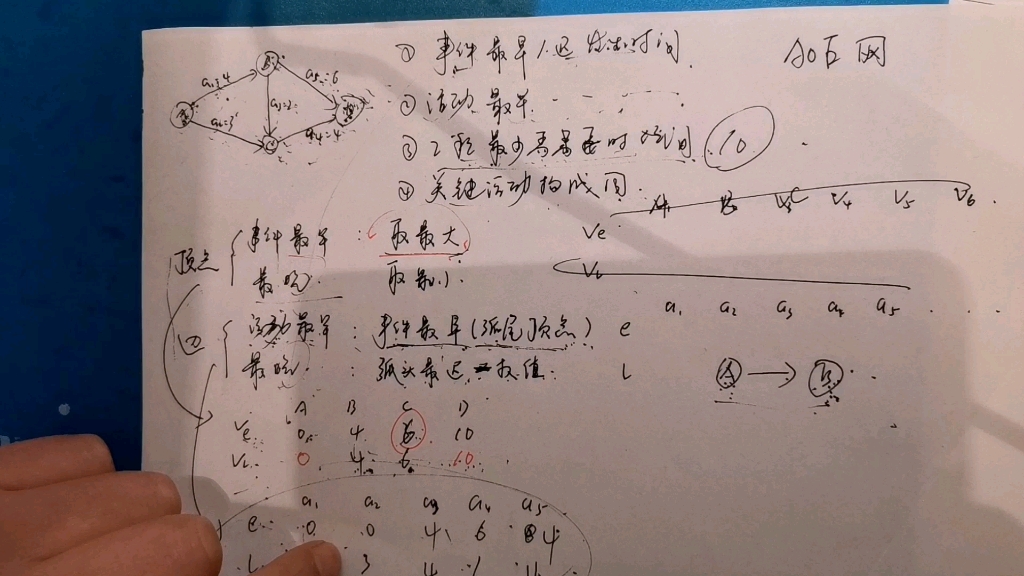 ① 事件最早/迟发生时间
AOE网
② 活动最早
③ 工程最少需要时间 10
④ 关键活动构成图
B
a5=6
a3=2
a4=4
A B C V4 V5 V6
Ve
VL
顶点
事件最早:取最大
最晚 取最小
a1 a2 a3 a4 a5
活动最早:事件最早(弧尾顶点) e
最晚:弧头最迟-权值 l
A → B
A B C D
Ve 0 4 6 10
VL 0 4 6 10
a1 a2 a3 a4 a5
e 0 0 4 6 4
3 4